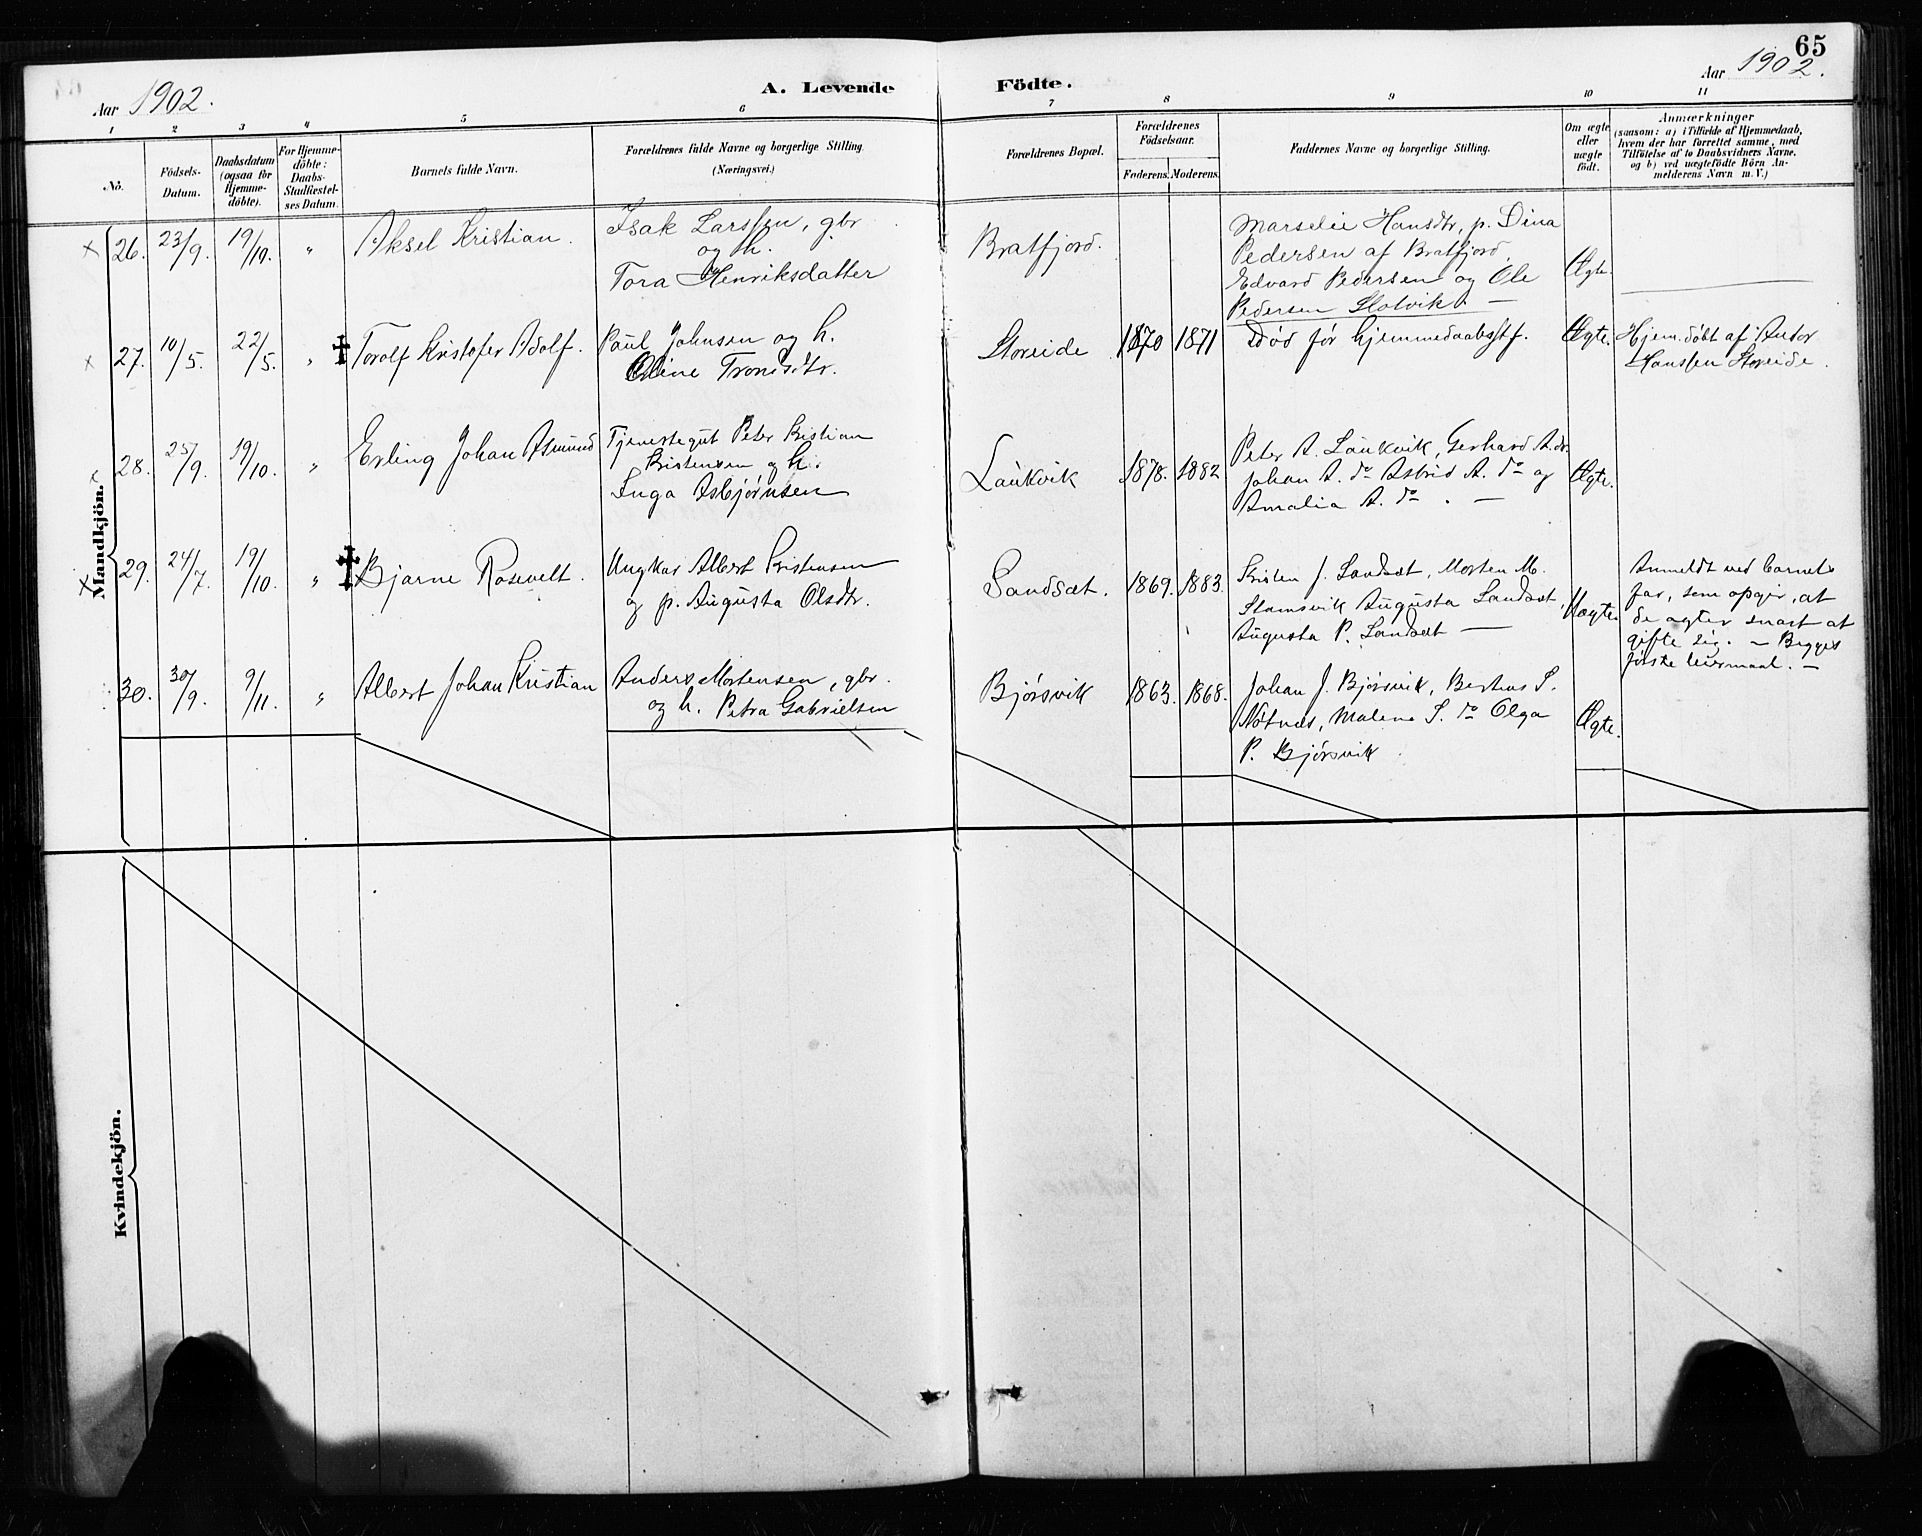 65
Aar 1902.
A. Levende Födte.
Aar 1902.
1 2 3 4 5 6 7 8 9 10 11
No.
Födsels-
Datum.
Daabsdatum
(ogsaa for
Hjemme-
döbte).
For Hjemme-
döbte:
Daabs-
Stadfæstel-
ses Datum.
Barnets fulde Navn.
Forældrenes fulde Navne og borgerlige Stilling.
(Næringsvei.)
Forældrenes Bopæl.
Forældrenes
Födselsaar.
Faderens. Moderens.
Faddernes Navne og borgerlige Stilling.
Om ægte
eller
uægte
födt.
Anmærkninger
(saasom: a) i Tilfælde af Hjemmedaab,
hvem der har forrettet samme, med
Tilföielse af to Daabsvidners Navne,
og b) ved uægtefödte Börn An-
melderens Navn m. V.)
Mandkjön.
26. 23/9. 19/10. " Aksel Kristian.
Isak Larssen, gbr
og h.
Tora Henriksdatter
Bratfjord.
Marselie Hansdtr, p. Dina
Pedersen af Bratfjord,
Edvard Pedersen og Ole
Pedersen Slotvik. —
Ægte.
27. 10/5. 22/5. " ✝ Torolf Kristofer Adolf.
Paul Johnsen og h.
Oline Trondsdtr.
Storeide 1870 1871
Død før hjemmedaabsstf.
Ægte.
Hjem.døbt af Antor
Hanssen Storeide.
28. 25/9. 19/10. " Erling Johan Asmund
Tjenestegut Peter Kristian
Kristensen og h.
Inga Asbjørnsen
Laukvik 1878. 1882
Peter A. Laukvik, Gerhard A. do
Johan A. do Astrid A. do og
Amalia A. do. —
Ægte.
29. 24/7. 19/10. " ✝ Bjarne Rosevelt.
Ungkar Albert Kristensen
og p. Augusta Olsdtr.
Sandsæt. 1869. 1883.
Kristen J. Sandsæt, Morten M.
Stamsvik Augusta Sandsæt,
Augusta P. Sandsæt —
Uægte.
Anmeldt ved barnets
far, som opgir, at
de agter snart at
gifte sig. — Begges
første leiermaal. —
30. 30/9. 9/11. " Albert Johan Kristian
Anders Mortensen, gbr.
og h. Petra Gabrielsen
Bjørsvik 1863. 1868.
Johan J. Bjørsvik, Berteus S.
Nøtnæs, Malene S. do Olga
P. Bjørsvik
Ægte.
Kvindekjön.